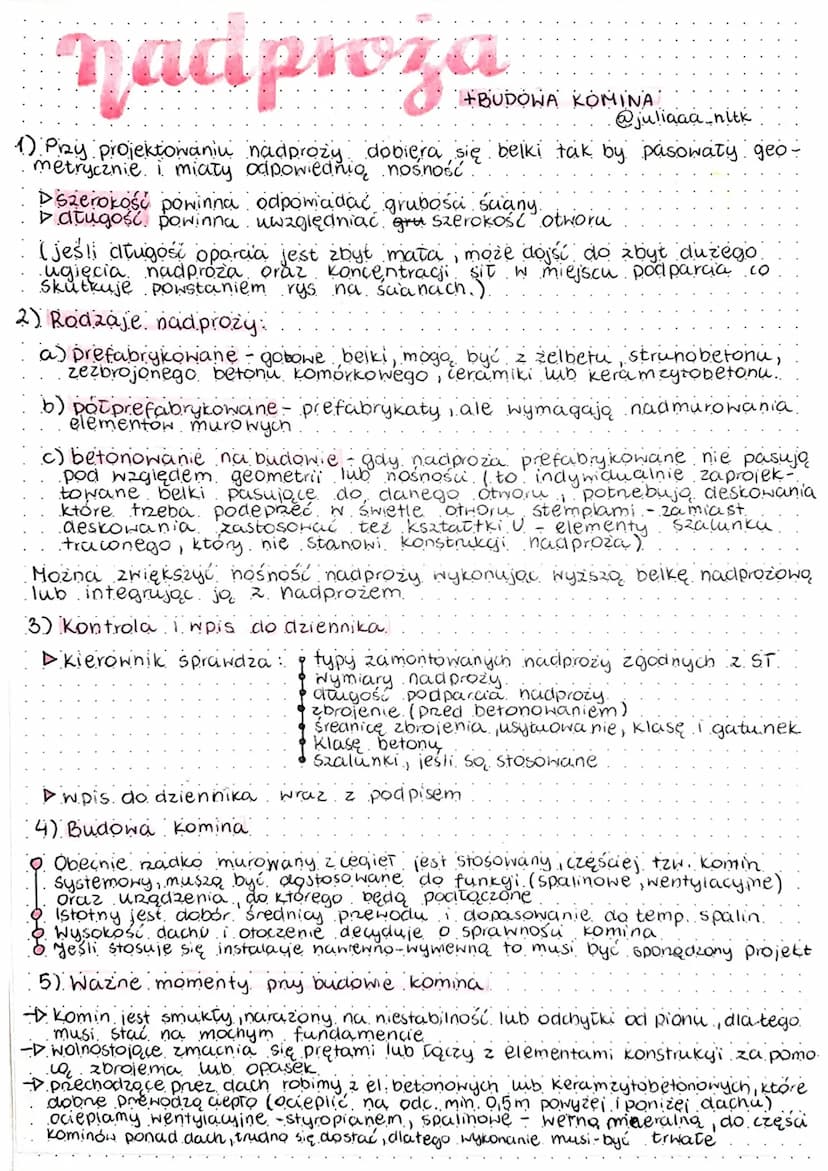 nadproża
+BUDOWA KOMINA
@juliaaa_nltk
1) Przy projektowaniu nadproży dobiera się belki tak by pasowały geo-
metrycznie i miały odpowiednią nośność
▷ szerokość powinna odpowiadać grubości ściany.
▷ długość powinna uwzględniać gru szerokość otworu
(jeśli długość oparcia jest zbyt mała, może dojść do zbyt dużego
ugięcia nadproża oraz koncentracji sił w miejscu podparcia co
skutkuje powstaniem rys na ścianach.)
2) Rodzaje nadproży:
a) prefabrykowane - gotowe belki, mogą być z żelbetu, strunobetonu,
zezbrojonego betonu komórkowego, ceramiki lub keramzytobetonu.
b) półprefabrykowane - prefabrykaty, ale wymagają nadmurowania
elementów murowych
c) betonowanie na budowie - gdy nadproża prefabrykowane nie pasują
pod względem geometrii lub nośności (to indywidualnie zaprojek-
towane belki pasujące do danego otworu, potrzebują deskowania
które trzeba podeprzeć w świetle otworu stemplami - zamiast
deskowania zastosować też kształtki U - elementy szalunku
traconego, który nie stanowi konstrukcji nadproża)
Można zwiększyć nośność nadproży wykonując wyższą belkę nadprożową
lub integrując ją z nadprożem
3) Kontrola i wpis do dziennika
▷ kierownik sprawdza:
• typy zamontowanych nadproży zgodnych z ST
• wymiary nadproży
• długość podparcia nadproży
• zbrojenie (przed betonowaniem)
• średnicę zbrojenia, usytuowanie, klasę i gatunek
• klasę betonu
• szalunki, jeśli są stosowane
▷ wpis do dziennika wraz z podpisem
4) Budowa komina
• Obecnie rzadko murowany z cegieł jest stosowany, częściej tzw. komin
systemowy, muszą być dostosowane do funkcji (spalinowe, wentylacyjne)
oraz urządzenia, do którego będą podłączone
• Istotny jest dobór średnicy przewodu i dopasowanie do temp. spalin
• Wysokość dachu i otoczenie decyduje o sprawności komina
• Jeśli stosuje się instalację nawiewno-wywiewną to musi być sporządzony projekt
5) Ważne momenty przy budowie komina
-▷ komin jest smukły, narażony na niestabilność lub odchyłki od pionu, dlatego
musi stać na mocnym fundamencie
-▷ wolnostojące zmacnia się prętami lub łączy z elementami konstrukcji za pomo-
cą zbrojenia lub opasek
-▷ przechodzące przez dach robimy z el. betonowych lub keramzytobetonowych, które
dobrze przewodzą ciepło (ocieplić na odc. min. 0,5m powyżej i poniżej dachu)
ocieplamy wentylacyjne - styropianem, spalinowe - wełną mineralną, do części
kominów ponad dach, trudno się dostać, dlatego wykonanie musi być trwałe